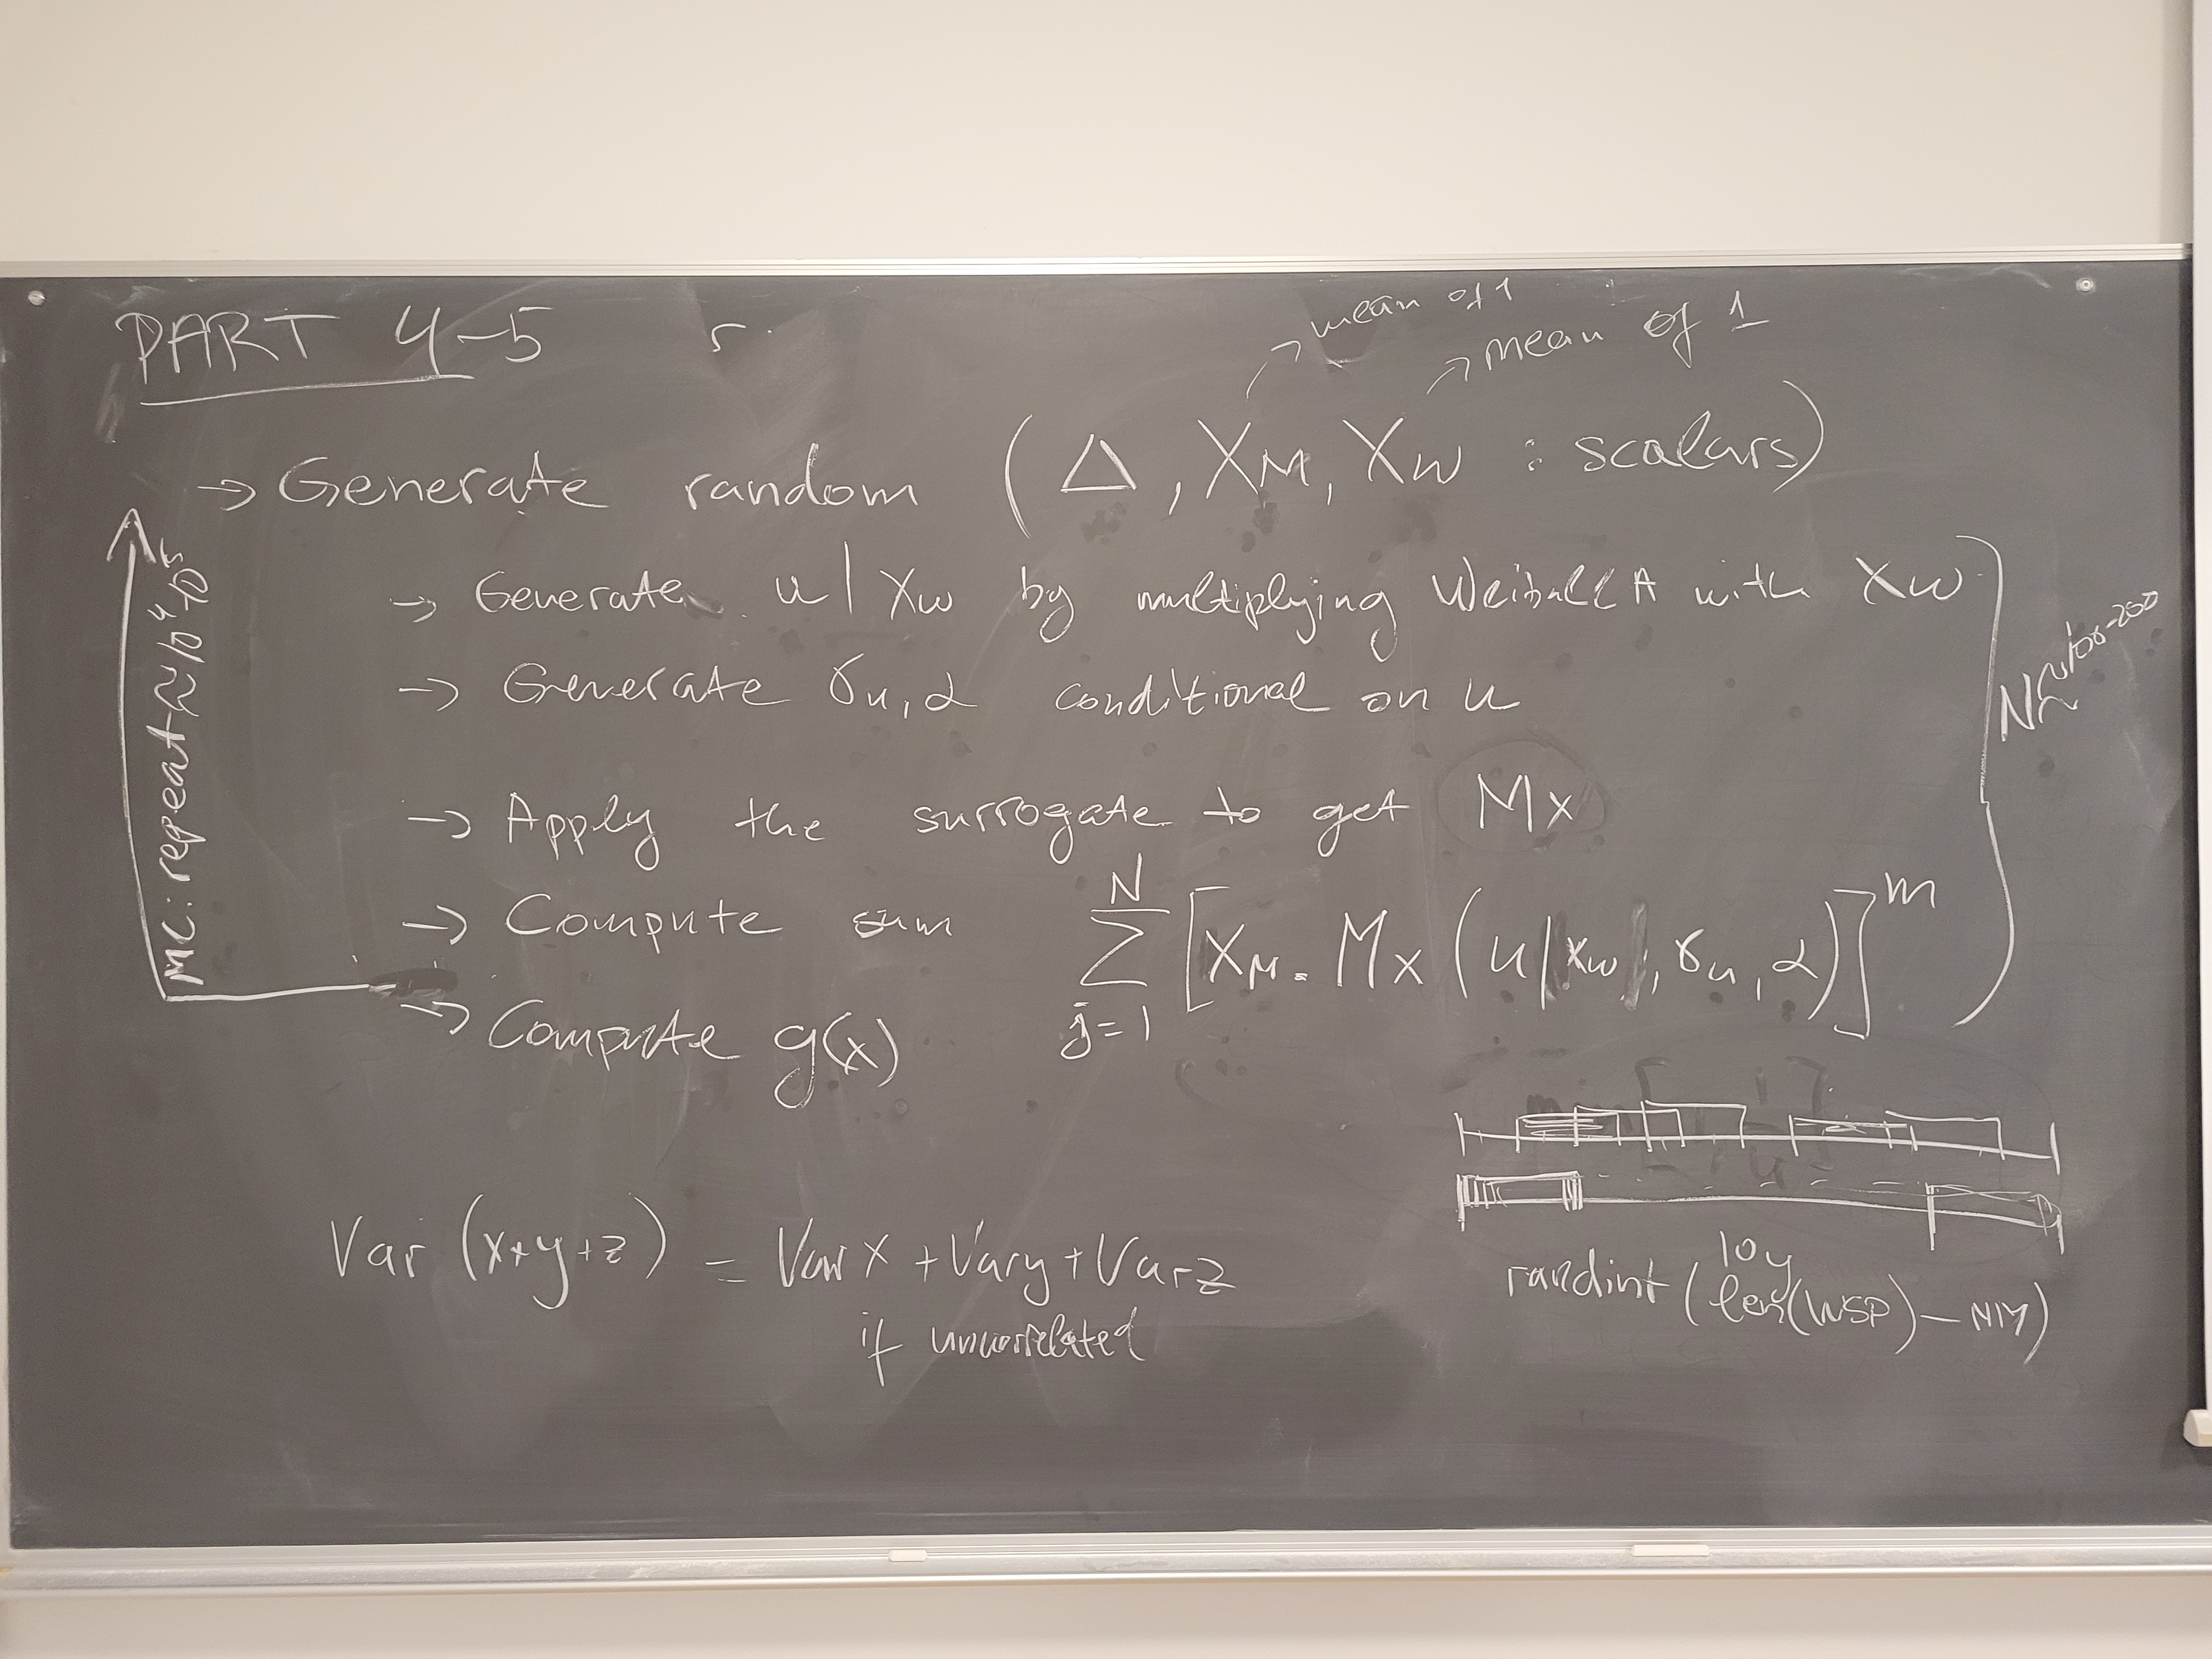 PART 4-5
→ mean of 1
→ mean of 1
→ Generate random (Δ, XM, XW : scalars)
→ Generate u | XW by multiplying Weibull A with XW
→ Generate σu, α conditional on u
→ Apply the surrogate to get Mx
→ Compute sum ∑_{j=1}^{N} [XM · Mx (u|XW, σu, α)]^m
→ Compute g(x)
MC: repeat ≈ 10^4 - 10^5
N ≈ 100-200
Var (x+y+z) = Var x + Var y + Var z
if uncorrelated
10y
randint (len(WSP) - NM)